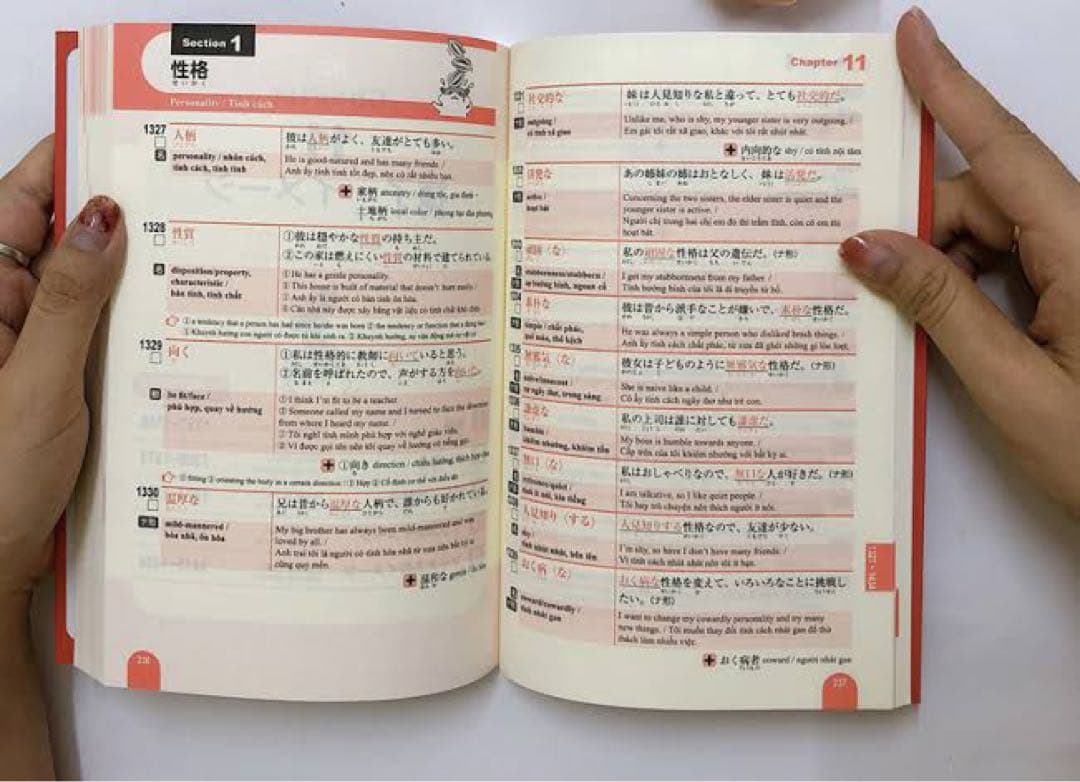 Section 1
性格
せいかく
Personality / Tính cách
1327
人柄
名
personality / nhân cách,
tính cách, tính tình
彼は人柄がよく、友達がとても多い。
He is good-natured and has many friends. /
Anh ấy tính tình tốt đẹp, nên có rất nhiều bạn.
+ 家柄 ancestry / dòng tộc, gia đình
土地柄 local color / phong tục địa phương
1328
性質
名
disposition/property,
characteristic /
bản tính, tính chất
①彼は穏やかな性質の持ち主だ。
②この家は燃えにくい性質の材料で建てられている。
① He has a gentle personality.
② This house is built of material that doesn't burn easily. /
① Anh ấy là người có bản tính ôn hòa.
② Căn nhà này được xây bằng vật liệu có tính chất khó cháy.
① a tendency that a person has had since he/she was born ② the tendency or function that a thing has
1329
向く
動
be fit/face /
phù hợp, quay về hướng
①私は性格的に教師に向いていると思う。
②名前を呼ばれたので、声がする方を向いた。
① I think I'm fit to be a teacher.
② Someone called my name and I turned to face the direction
from where I heard my name. /
① Tôi nghĩ tính mình phù hợp với nghề giáo viên.
② Vì được gọi tên nên tôi quay về hướng có tiếng gọi.
+ ①向き direction / chiều hướng, thích hợp
① fitting ② orienting the body in a certain direction / ① Hợp ② Cố định cơ thể với
1330
温厚な
ナ形
mild-mannered /
hòa nhã, ôn hòa
兄は昔から温厚な人柄で、誰からも好かれている。
My big brother has always been mild-mannered and was
loved by all. /
Anh trai tôi là người có tính hòa nhã từ xưa nên bất kỳ ai
cũng quý mến.
+ 温和な
236
Chapter 11
社交的な
outgoing /
có tính xã giao
妹は人見知りな私と違って、とても社交的だ。
Unlike me, who is shy, my younger sister is very outgoing. /
Em gái tôi rất xã giao, khác với tôi rất nhút nhát.
+ 内向的な shy / có tính nội tâm
活発な
active /
hoạt bát
あの姉妹の姉はおとなしく、妹は活発だ。
Concerning the two sisters, the elder sister is quiet and the
younger sister is active. /
Người chị trong hai chị em đó thì trầm tĩnh, còn cô em thì
hoạt bát.
頑固（な）
stubbornness/stubborn /
sự bướng bỉnh, ngoan cố
私の頑固な性格は父の遺伝だ。（ナ形）
I get my stubbornness from my father. /
Tính bướng bỉnh của tôi là di truyền từ bố.
素朴な
simple / chất phác,
quê mùa, thô kệch
彼は昔から派手なことが嫌いで、素朴な性格だ。
He was always a simple person who disliked brash things. /
Anh ấy tính cách chất phác, từ xưa đã ghét những gì lòe loẹt.
無邪気（な）
naive/innocent /
sự ngây thơ, trong sáng
彼女は子どものように無邪気な性格だ。（ナ形）
She is naive like a child. /
Cô ấy tính cách ngây thơ như trẻ con.
謙虚な
humble /
khiêm nhường, khiêm tốn
私の上司は誰に対しても謙虚だ。
My boss is humble towards anyone. /
Cấp trên của tôi khiêm nhường với bất kỳ ai.
無口（な）
reticence/quiet /
tính ít nói, kín tiếng
私はおしゃべりなので、無口な人が好きだ。（ナ形）
I am talkative, so I like quiet people. /
Tôi hay trò chuyện nên thích người ít nói.
人見知り（する）
shy /
tính nhút nhát, bẽn lẽn
人見知りする性格なので、友達が少ない。
I'm shy, so have I don't have many friends. /
Vì tính cách nhút nhát nên tôi ít bạn.
おく病（な）
coward/cowardly /
tính nhát gan
おく病な性格を変えて、いろいろなことに挑戦し
たい。（ナ形）
I want to change my cowardly personality and try many
new things. / Tôi muốn thay đổi tính cách nhát gan để thử
thách làm nhiều việc.
+ おく病者 coward / người nhát gan
237